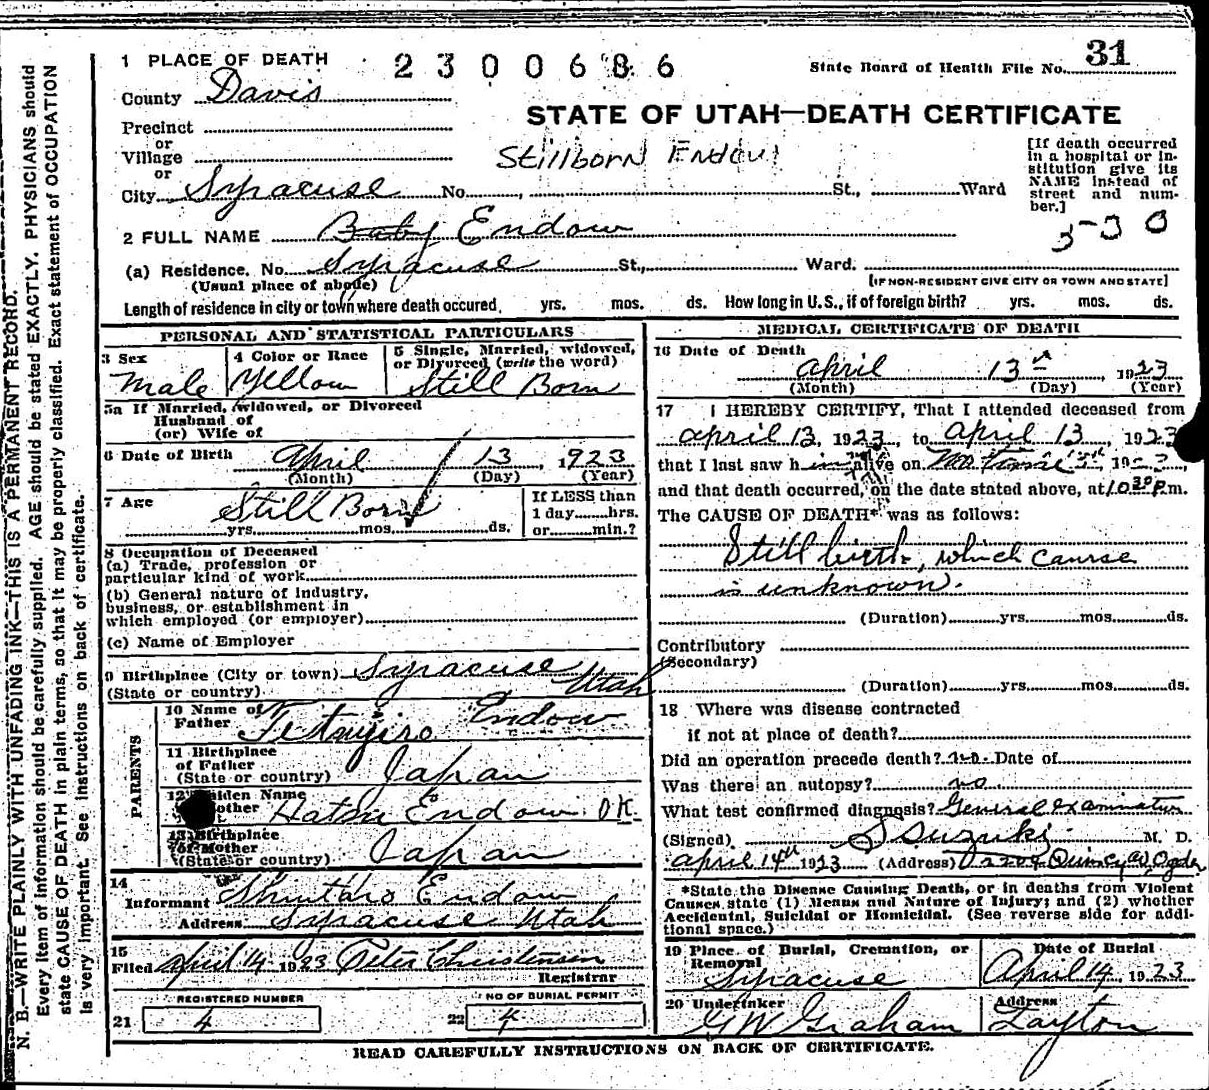 1 PLACE OF DEATH
2300686
State Board of Health File No. 31
County Davis
STATE OF UTAH—DEATH CERTIFICATE
Precinct
or
Village
Stillborn Endow
or
City Syracuse No. , St., Ward
[If death occurred
in a hospital or in-
stitution give its
NAME instead of
street and num-
ber.]
3-30
2 FULL NAME Baby Endow
(a) Residence. No. Syracuse St., Ward.
(Usual place of abode)
[IF NON-RESIDENT GIVE CITY OR TOWN AND STATE]
Length of residence in city or town where death occured, yrs. mos. ds. How long in U.S., if of foreign birth? yrs. mos. ds.
PERSONAL AND STATISTICAL PARTICULARS
3 Sex
Male
4 Color or Race
Yellow
5 Single, Married, widowed,
or Divorced (write the word)
Still Born
5a If Married, widowed, or Divorced
Husband of
(or) Wife of
6 Date of Birth April 13, 1923
(Month) (Day) (Year)
7 Age Still Born
yrs. mos. ds.
If LESS than
1 day hrs.
or min.?
8 Occupation of Deceased
(a) Trade, profession or
particular kind of work
(b) General nature of Industry,
business, or establishment in
which employed (or employer)
(c) Name of Employer
9 Birthplace (City or town) Syracuse
(State or country) Utah
PARENTS
10 Name of
Father Endow
11 Birthplace
of Father
(State or country) Japan
12 Maiden Name
of Mother Hatsu Endow O.K.
13 Birthplace
of Mother
(State or country) Japan
14
Informant Shintaro Endow
Address Syracuse Utah
15
Filed April 14 1923 Peter Christensen
Registrar
REGISTERED NUMBER
21 4
NO OF BURIAL PERMIT
22 4
MEDICAL CERTIFICATE OF DEATH
16 Date of Death
April 13th, 1923
(Month) (Day) (Year)
17 I HEREBY CERTIFY, That I attended deceased from
April 13, 1923, to April 13, 1923
that I last saw him alive on 19
and that death occurred, on the date stated above, at 10.30 P.m.
The CAUSE OF DEATH* was as follows:
Still birth, which cause
is unknown.
(Duration) yrs. mos. ds.
Contributory
(Secondary)
(Duration) yrs. mos. ds.
18 Where was disease contracted
if not at place of death?
Did an operation precede death? no. Date of
Was there an autopsy? no.
What test confirmed diagnosis? General examination
(Signed) S Suzuki M. D.
April 14th 1923 (Address) Ogden
*State the Disease Causing Death, or in deaths from Violent
Causes, state (1) Means and Nature of Injury; and (2) whether
Accidental, Suicidal or Homicidal. (See reverse side for addi-
tional space.)
19 Place of Burial, Cremation, or
Removal
Syracuse
Date of Burial
April 14, 1923
20 Undertaker
G W Graham
Address
Layton
READ CAREFULLY INSTRUCTIONS ON BACK OF CERTIFICATE.
N. B.—WRITE PLAINLY WITH UNFADING INK—THIS IS A PERMANENT RECORD.
Every item of information should be carefully supplied. AGE should be stated EXACTLY. PHYSICIANS should
state CAUSE OF DEATH in plain terms, so that it may be properly classified. Exact statement of OCCUPATION
is very important. See instructions on back of certificate.